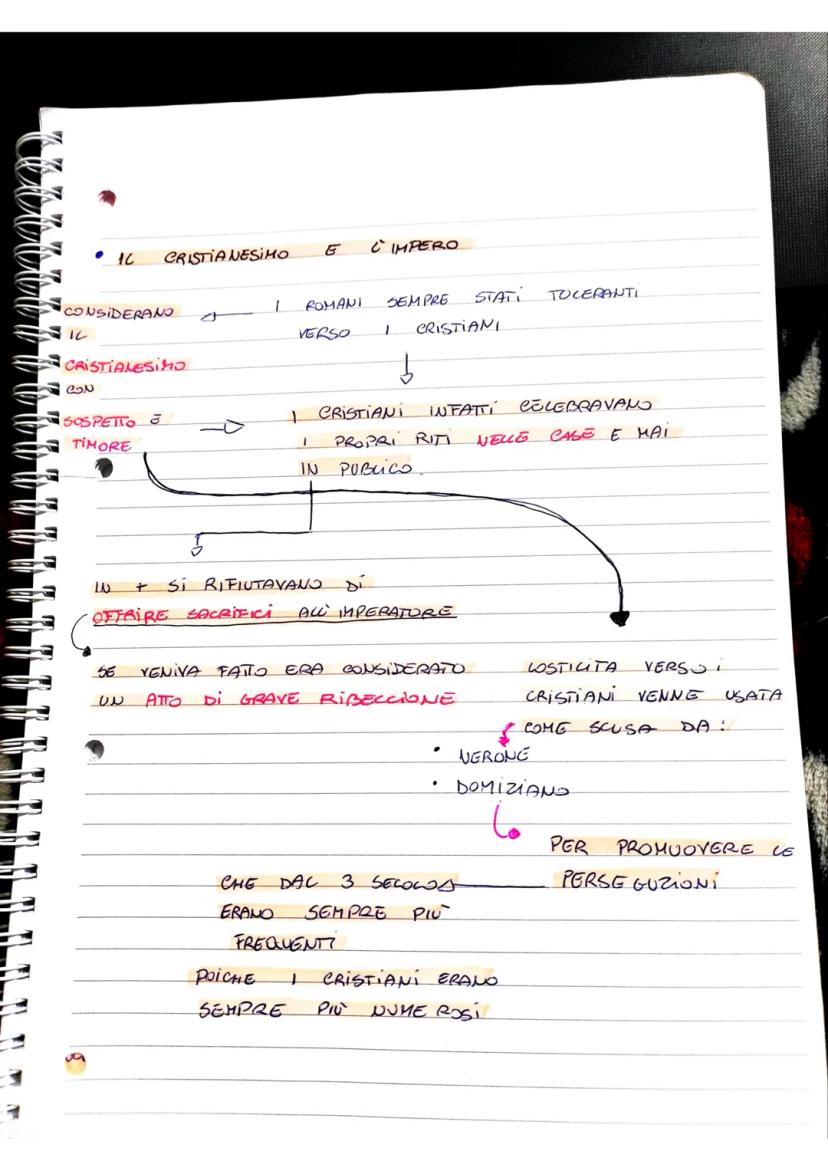 • IL CRISTIANESIMO E L'IMPERO
I ROMANI SEMPRE STATI TOLERANTI
VERSO I CRISTIANI
CONSIDERANO
IL
CRISTIANESIMO
CON
SOSPETTO E
TIMORE
I CRISTIANI INFATTI CELEBRAVANO
I PROPRI RITI NELLE CASE E MAI
IN PUBLICO.
IN + SI RIFIUTAVANO DI
OFFRIRE SACRIFICI ALL'IMPERATORE
SE VENIVA FATTO ERA CONSIDERATO
UN ATTO DI GRAVE RIBELLIONE
LOSTILITA VERSO I
CRISTIANI VENNE USATA
COME SCUSA DA:
• NERONE
• DOMIZIANO
PER PROMUOVERE LE
PERSEGUZIONI
CHE DAL 3 SECOLO
ERANO SEMPRE PIÙ
FREQUENTI
POICHE I CRISTIANI ERANO
SEMPRE PIÙ NUMEROSI